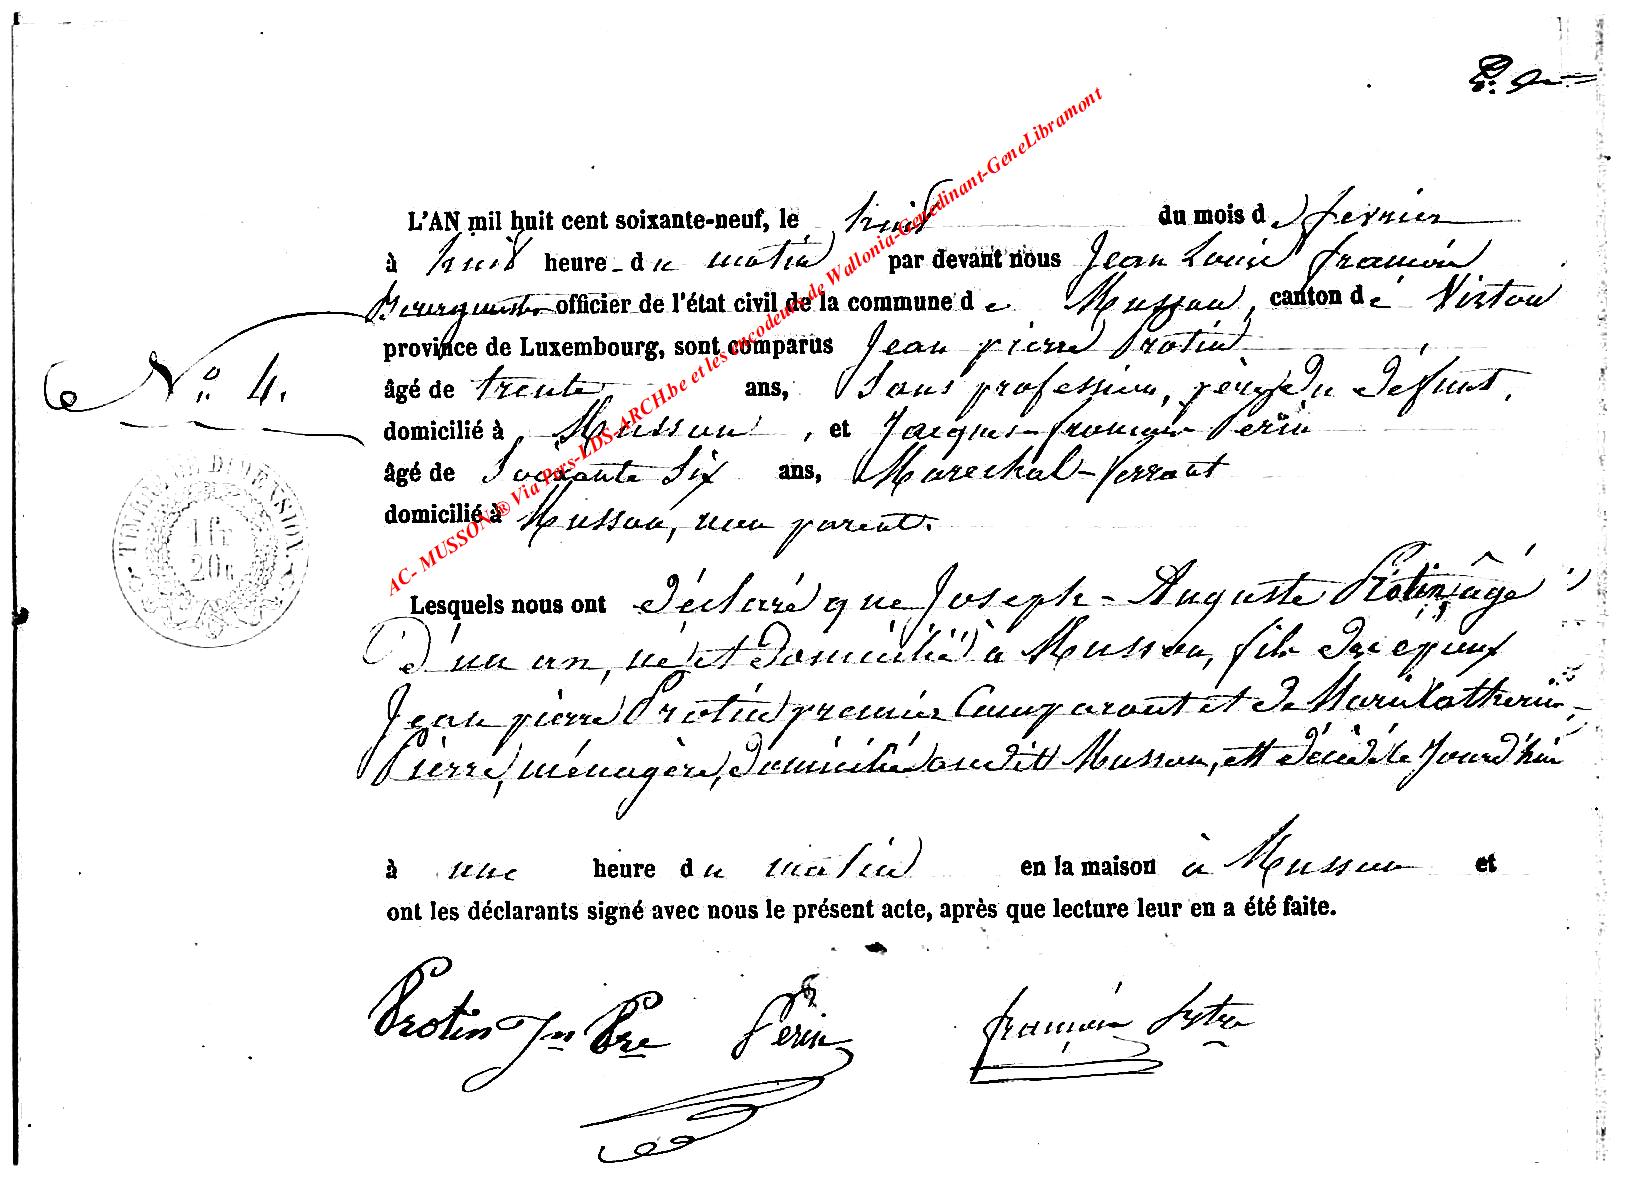 L'AN mil huit cent soixante-neuf, le huit du mois de fevrier
à huit heure du matin par devant nous Jean Louis françois
Bourgmestre officier de l'état civil de la commune de Musson, canton de Virton
province de Luxembourg, sont comparus Jean pierre Protin
No. 4. âgé de trente ans, Sans profession, père du défunt,
domicilié à Musson, et Jacques-françois Perin
âgé de Soixante Six ans, Marechal-ferrant
domicilié à Musson, non parent.
TIMBRE DE DIMENSION.
1 fr
20c
Lesquels nous ont déclaré que Joseph-Auguste Protin, âgé
d'un an, né et domicilié à Musson, fils des époux
Jean pierre Protin premier Comparant et de Marie Catherine
Pierre, ménagère, domiciliés audit Musson, est décédé le Jourd'hui
à une heure du matin en la maison à Musson et
ont les déclarants signé avec nous le présent acte, après que lecture leur en a été faite.
Protin Jn Pre Perin françois
AC- MUSSON® Via Pers-LDS-ARCH.be et les encodeurs de Wallonia-Genedinant-GeneLibramont